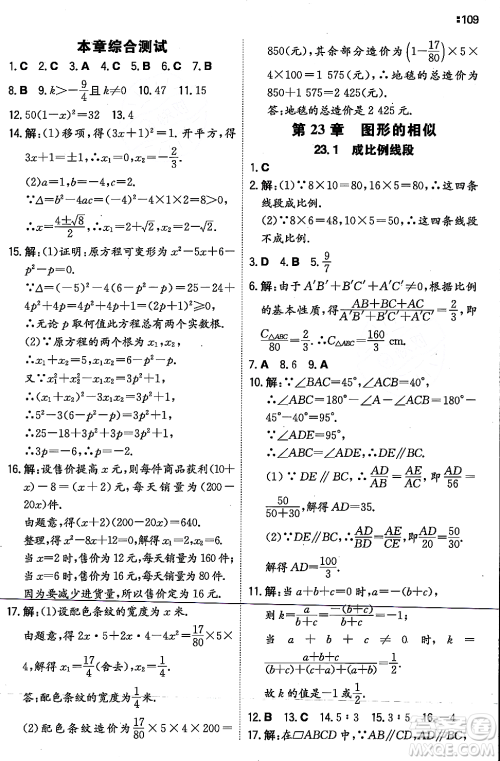 :109
本章综合测试
1. C 2. C 3. C 4. A 5. D 6. A 7. C
8. B 9. k>-9/4且 k≠0 10. 47 11. 15
12. 50(1-x)²=32 13. 4
14. 解:(1)移项,得 3(x-1)²=2. 开平方,得
(2)a=1,b=-4,c=2.
∵Δ=b²-4ac=(-4)²-4×1×2=8>0,
∴x=(4±√8)/2=2±√2.
15. 解:(1)证明:原方程可变形为 x²-5x+6-
p²-p=0.
∵Δ=(-5)²-4(6-p²-p)=25-24+
4p²+4p=4p²+4p+1=(2p+1)²≥0,
∴无论 p 取何值此方程总有两个实数根.
(2)∵原方程的两根为 x₁,x₂,
∴x₁+x₂=5,x₁x₂=6-p²-p.
又∵x₁²+x₂²-x₁x₂=3p²+1,
∴(x₁+x₂)²-3x₁x₂=3p²+1.
∴5²-3(6-p²-p)=3p²+1.
∴25-18+3p²+3p=3p²+1.
∴3p=-6. ∴p=-2.
16. 解:设售价提高 x 元,则每件商品获利(10+
x)-8=(2+x)元,每天销售量为(200-
20x)件.
由题意,得(x+2)(200-20x)=640.
整理,得 x²-8x+12=0. 解得 x₁=6,x₂=2.
当 x=2 时,售价为 12 元,每天销量为 160 件;
当 x=6 时,售价为 16 元,每天销量为 80 件.
因为要减少进货量,所以售价定为 16 元.
17. 解:(1)设配色条纹的宽度为 x 米.
由题意,得 2x·5+2x·4-4x²=17/80×5×
4. 解得 x₁=17/4(舍去),x₂=1/4.
答:配色条纹的宽度为 1/4 米.
(2)配色条纹造价为 17/80×5×4×200=
850(元),其余部分造价为(1-17/80)×5×
4×100=1 575(元),∴地毯的总造价为
850+1 575=2 425(元).
答:地毯的总造价是 2 425 元.
第 23 章 图形的相似
23.1 成比例线段
1. C
2. 解:(1)∵8×10=80,16×5=80,∴这四条
线段成比例.
(2)∵8×6=48,10×5=50,∴这四条线段
不成比例.
3. D 4. B 5. 9/7
6. 解:由于A′B′+B′C′+A′C′=80,根据比例
的基本性质,得 (AB+BC+AC)/(A′B′+B′C′+A′C′)=2/3,即
C△ABC/80=2/3,∴C△ABC=160/3 cm.
7. A 8. 6 9. A
10. 解:∵∠BAC=45°,∠ACB=40°,
∴∠ABC=180°-∠BAC-∠ACB=
180°-45°-40°=95°.
又∵∠ADE=95°,
∴∠ADE=∠ABC. ∴DE∥BC.
(1)∵DE∥BC,∴AD/AB=AE/AC,即
50/(50+30)=AD/56,解得 AD=35.
(2)∵DE∥BC,
11. 解:当 a+b+c=0 时,a+b=-c,
当 a+b+c≠0 时,k=
12. B 13. C 14. 5∶3 15. 5 16. -4
17. 解:在□ABCD 中,AB∥CD,AD∥BC,